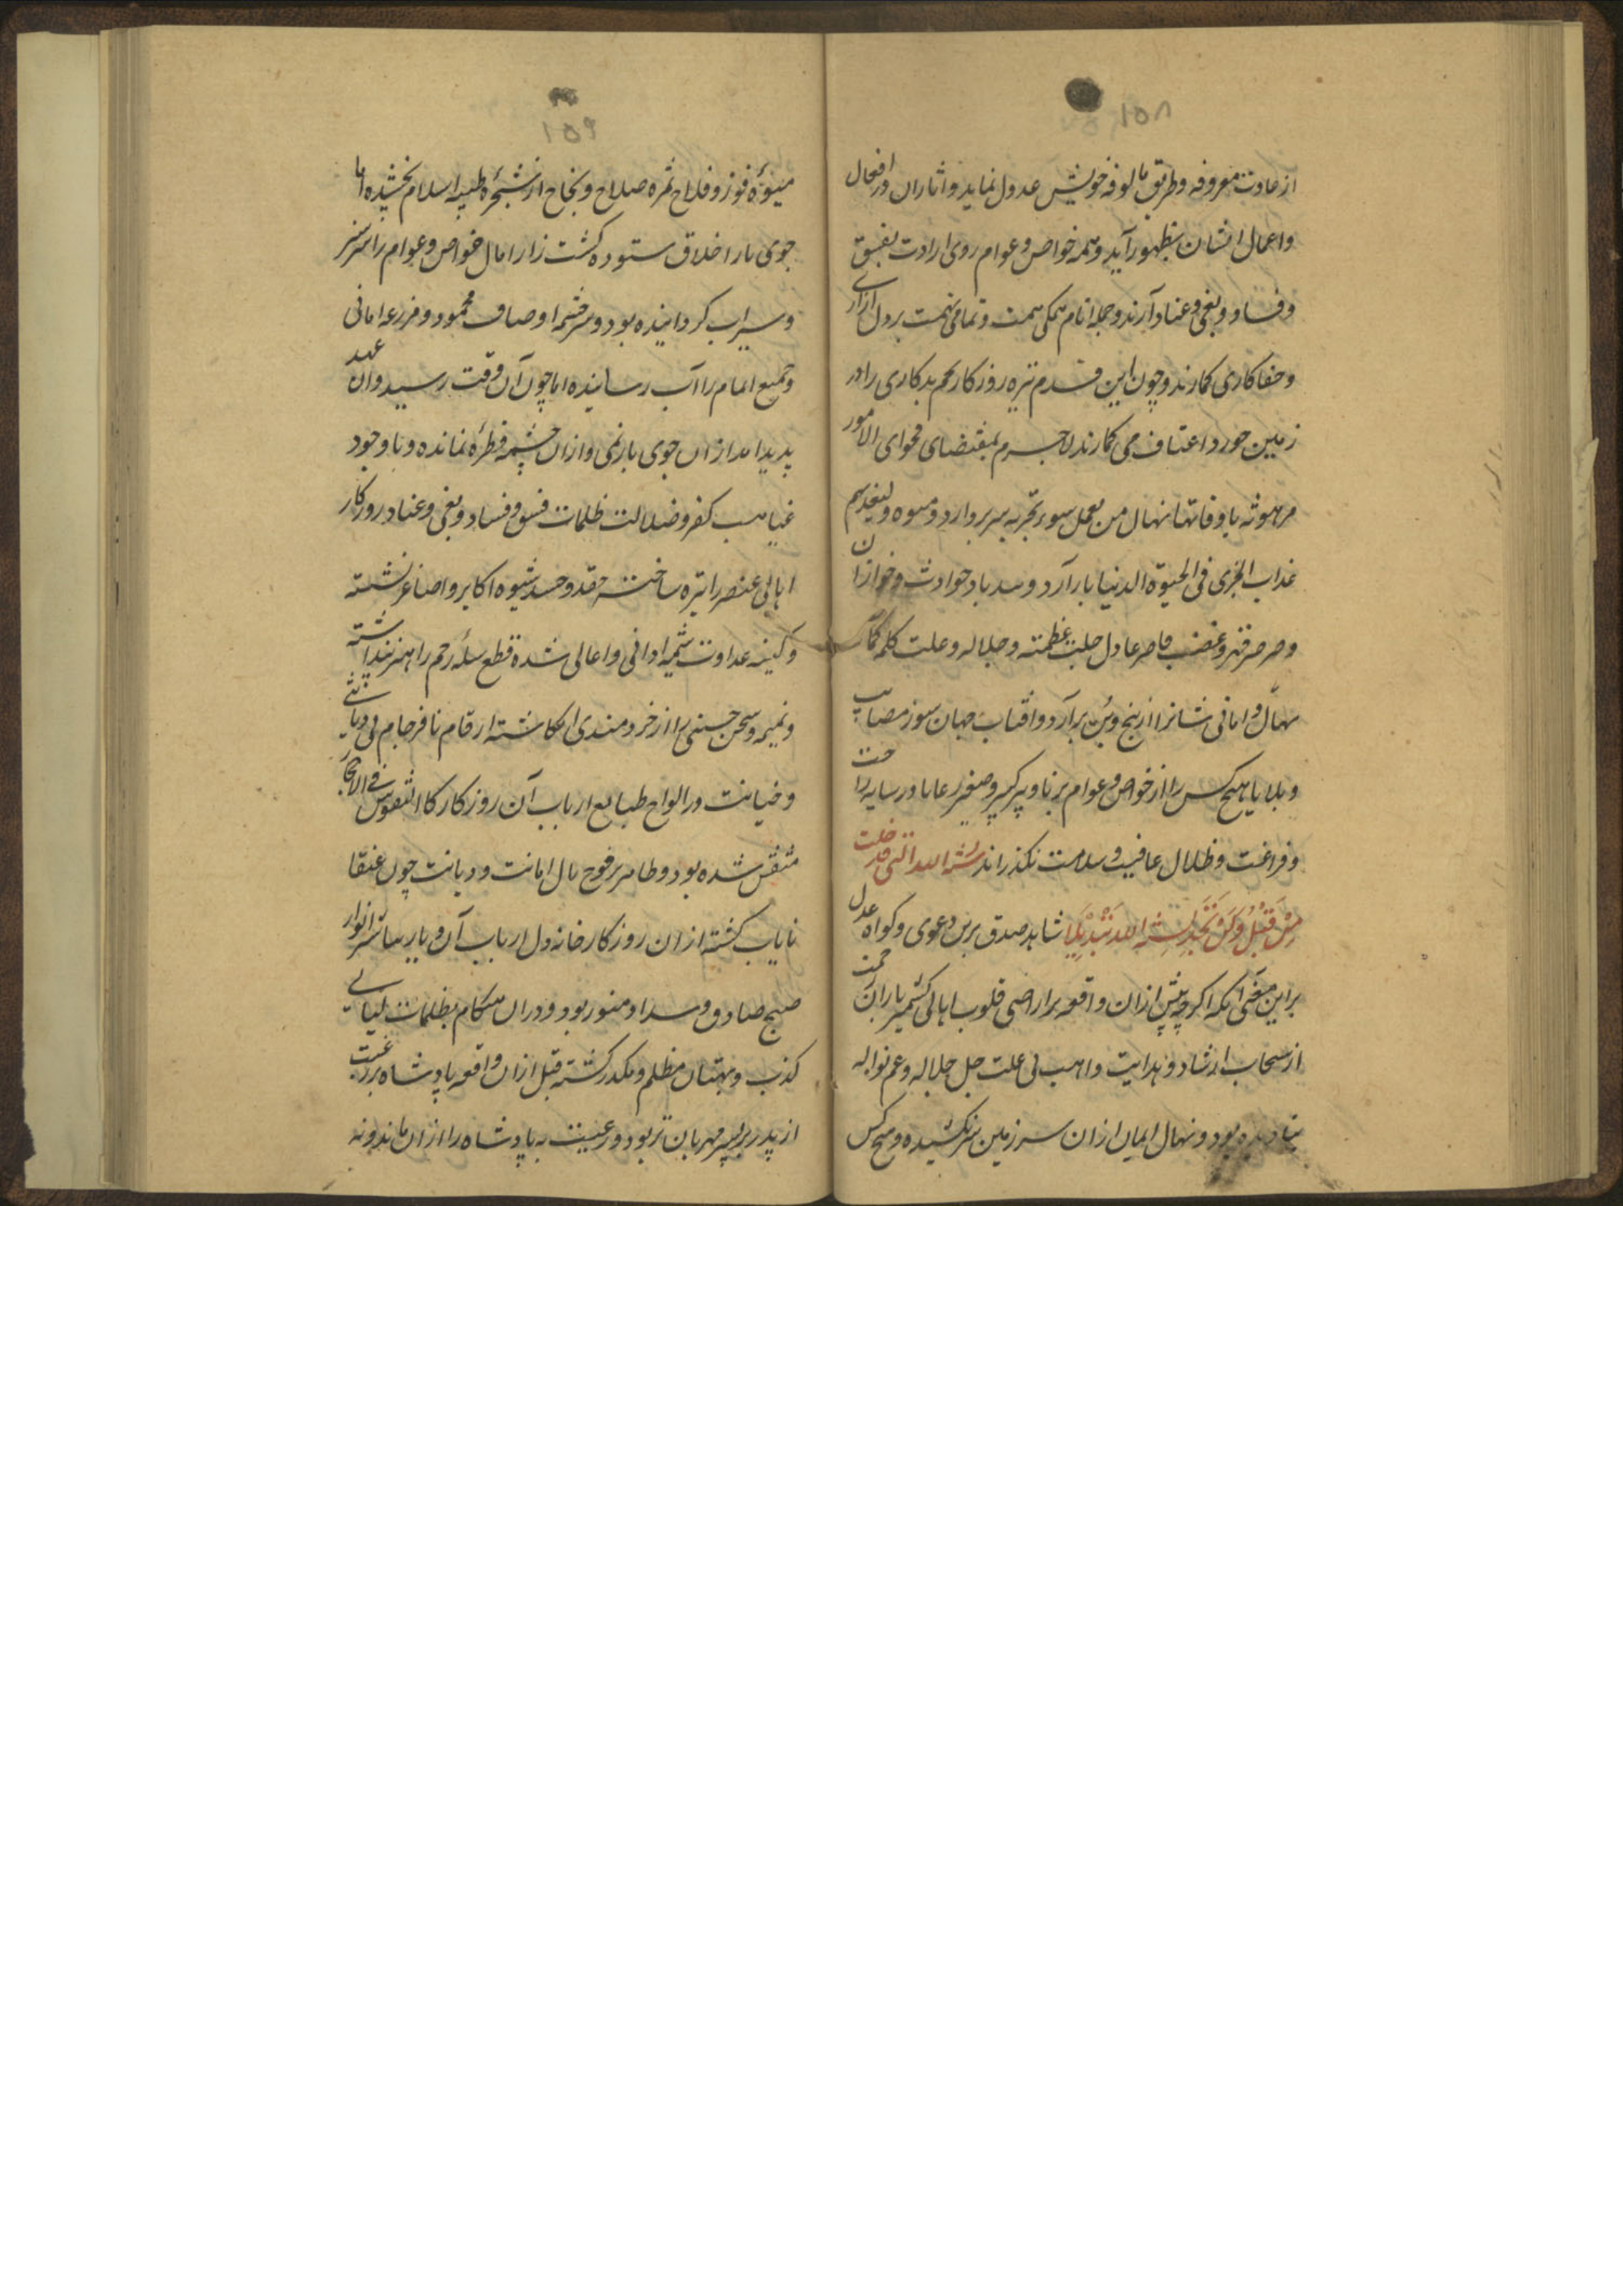 ۱۵۸
از عادت معروفه و طریق مالوفه خویش عدول نماید و اثار ان در افعال
و اعمال ایشان بظهور آید و همه خواص و عوام روی ارادت بفسق
و فساد و بغی و عناد آرند و جمله انام همکی همت و تمامی نهمت بر دل ازاری
و جفا کاری کمارند و چون این قدم تیره روزکار تخم بدکاری را در
زمین جور و اعتساف می کمارند لاجرم بمقتضای فحوای الامور
مرهونه باوقاتها نهال من یعمل سوء تجز به سر بر دارد و میوه ولنیذیقهم
عذاب الخزی فی الحیوة الدنیا بار آرد و سد باد حوادث و خوازان
و صرصر قهر و غضب قاصر عادل جلت عظمته و جلاله و علت کلمه کمآ
نهال و امانی شانرا از بیخ و بن بر آرد و افتاب جهان سوز مصایب
و بلایا هیچ کس را از خواص و عوام برنا و پیر کبیر و صغیر رعایا در سایه راحت
و فراغت و ظلال عافیت و سلامت نکذراند سنة الله التی قد خلت
مِنْ قَبْلُ وَلَنْ تَجِدَ لِسُنَّةِ اللهِ تَبْدِیْلًا شاهد صدق برین دعوی و کواه عدل
بر این معنی آنکه اکر چه پیش ازان واقعه بر اراضی قلوب اهالی کشمیر باران رحمت
از سحاب ارشاد و هدایت واهب بی علت جل جلاله و عم نواله
نباریده بود و نهال ایمان ازان سرزمین سر نکشیده و هیچ کس
۱۵۹
میوۀ فوز و فلاح ثمره صلاح و نجاح از شجرۀ طیبه اسلام نچشیده اما
جوی بار اخلاق ستوده کشت زار امال خواص و عوام را سر سبز
و سیراب کردانیده بود و سرچشمه اوصاف محمود و مزرعه امانی
و جمیع انام را آب رسانیده اما چون آن وقت رسید و ان عهد
پدید امد از ان جوی بار نمی و ازان چشمه قطرۀ نمانده و با وجود
غیاهب کفر و ضلالت ظلمات فسق و فساد و بغی و عناد روزکار
اهالی عنصر را تیره ساخته حقد و حسد شیوه اکابر و اصاغر کشته
و کینه عداوت شیمه ادانی و اعالی شده قطع سلۀ رحم را هنر پنداشته
و نمیمه و سخن چینی را از خردمندی انکاشته ارقام نافرجام بی دیانتی
و خیانت در الواح طبایع ارباب آن روزکار کا النقوش فی الاحجار
منقش شده بود و طایر فرخ بال امانت و دیانت چون عنقا
نایاب کشته ازان روزکار خانه دل ارباب آن دیار بتباشیر انوار
صبح صادق و سداد منور بود و دران هنکام بظلمات لیالی
کذب و بهتان مظلم و مکدر کشته قبل ازان واقعه پادشاه بر رعیت
از پدر بر پسر مهربان تر بود و رعیت به پادشاه را ازان ماند و نه